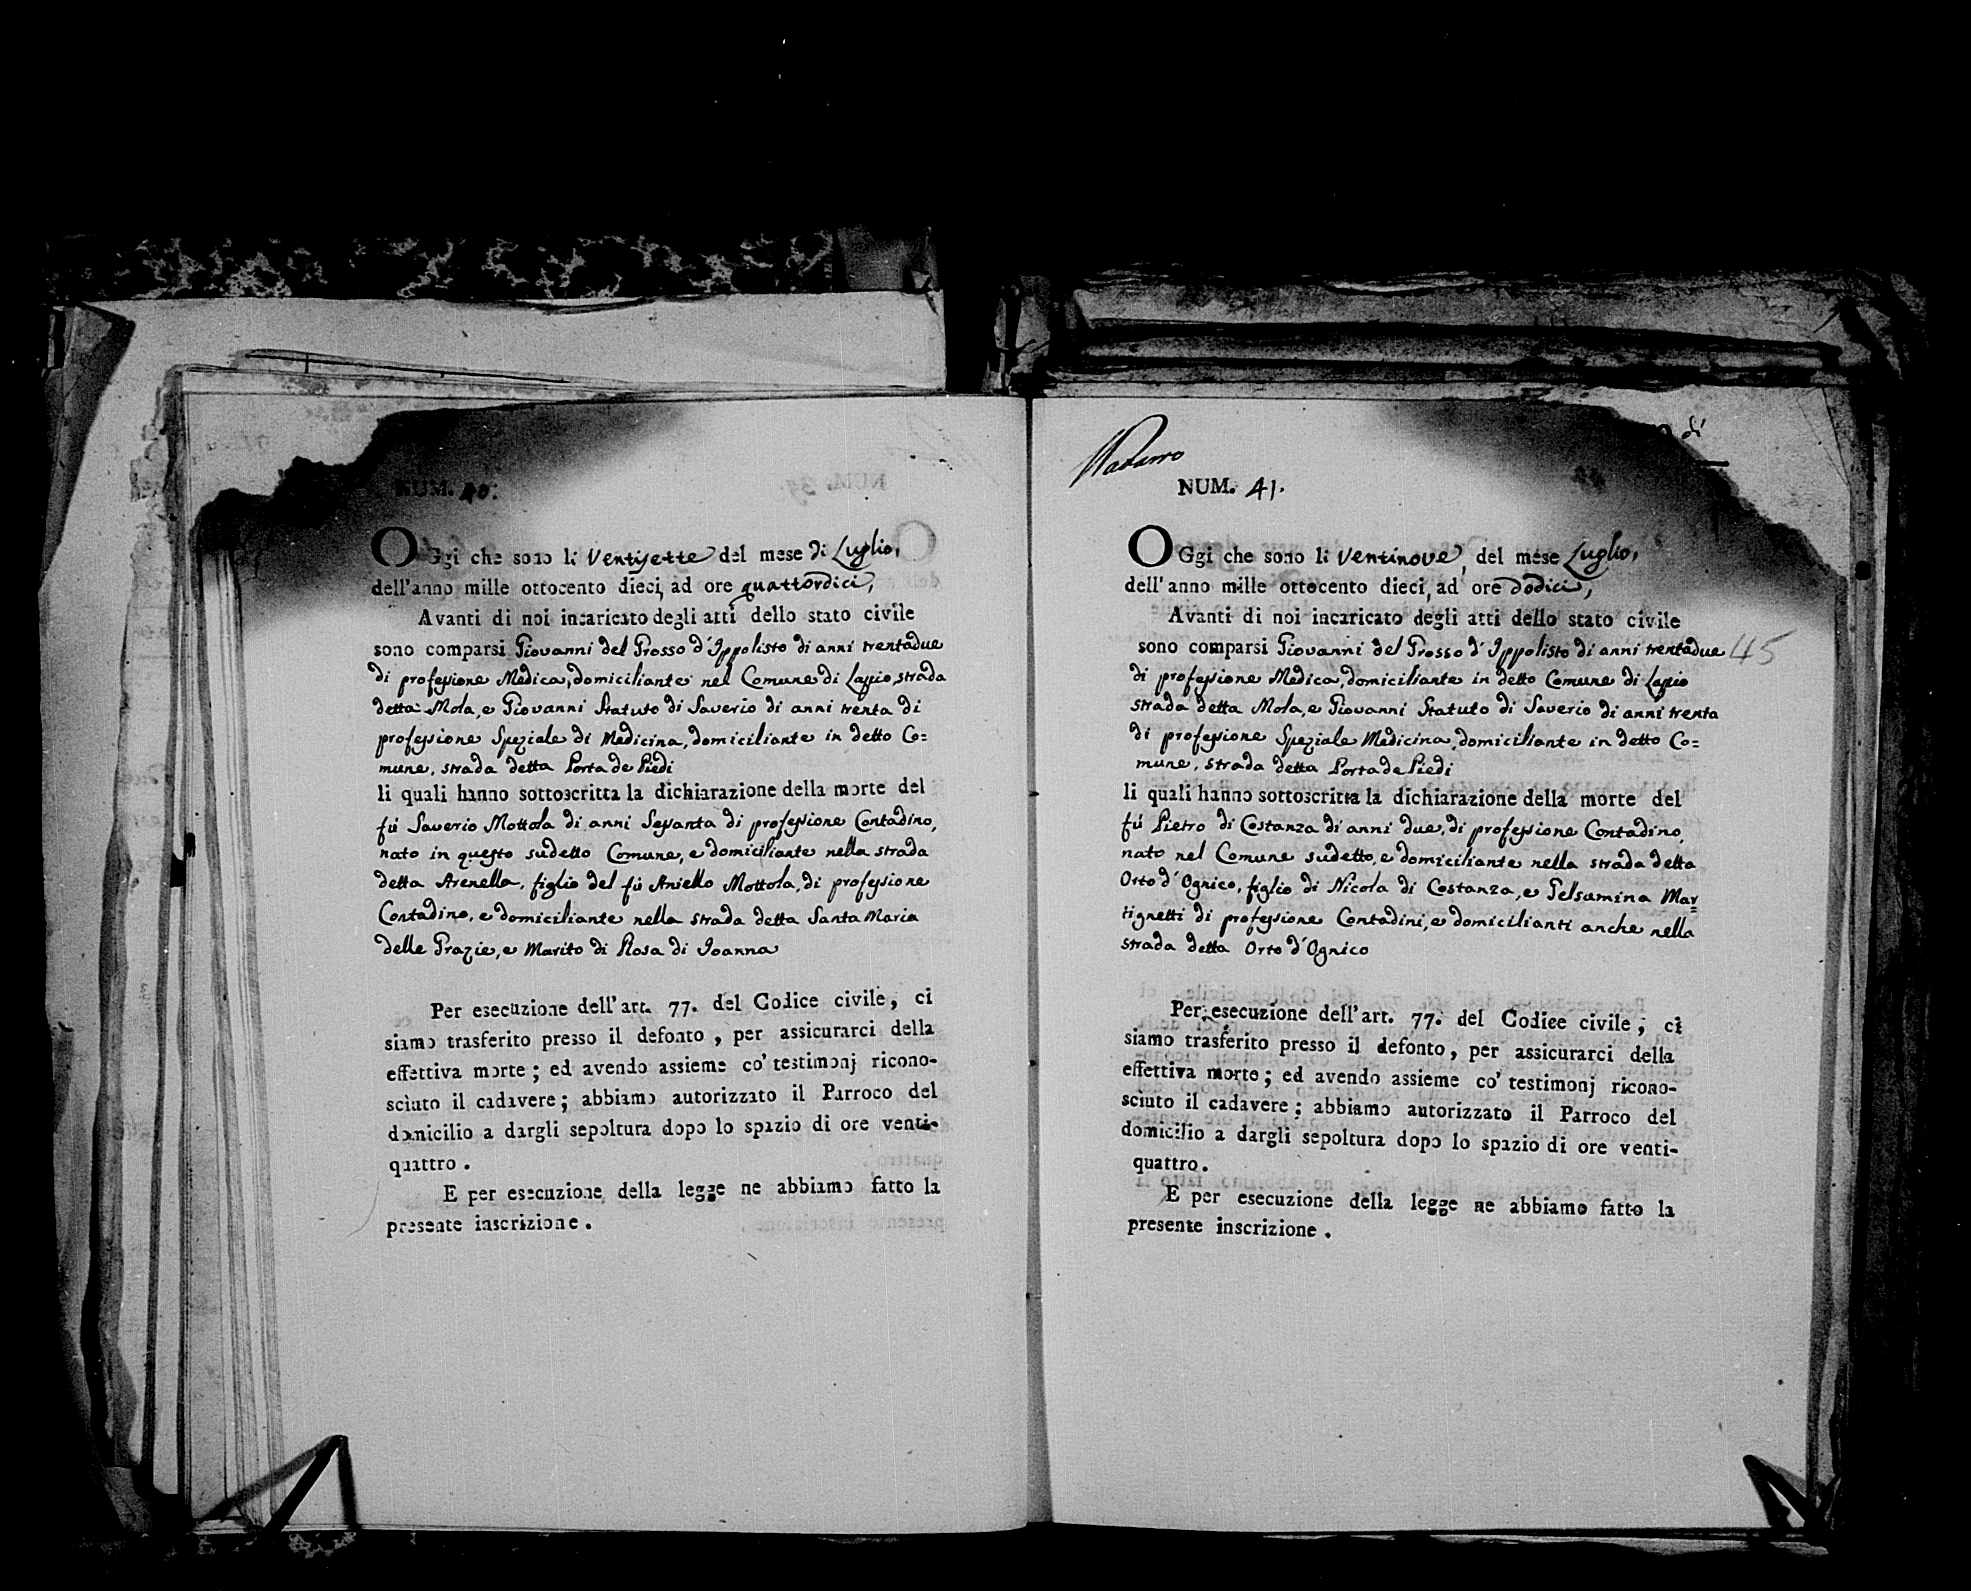 NUM. 40.
OGgi che sono li Ventisette del mese di Luglio,
dell'anno mille ottocento dieci, ad ore quattordici,
Avanti di noi incaricato degli atti dello stato civile
sono comparsi Giovanni del Grosso d'Ippolisto di anni trentadue
di professione Medica, domiciliante nel Comune di Lapio, strada
detta Mola, e Giovanni Statuto di Saverio di anni trenta di
professione Speziale di Medicina, domiciliante in detto Co=
mune, strada detta Porta de Piedi
li quali hanno sottoscritta la dichiarazione della morte del
fù Saverio Mottola di anni Sessanta di professione Contadino,
nato in questo sudetto Comune, e domiciliante nella strada
detta Arenella, figlio del fù Aniello Mottola, di professione
Contadino, e domiciliante nella strada detta Santa Maria
delle Grazie, e Marito di Rosa di Joanna
Per esecuzione dell'art. 77. del Codice civile, ci
siamo trasferito presso il defonto, per assicurarci della
effettiva morte; ed avendo assieme co' testimonj ricono-
sciuto il cadavere; abbiamo autorizzato il Parroco del
domicilio a dargli sepoltura dopo lo spazio di ore venti-
quattro.
E per esecuzione della legge ne abbiamo fatto la
presente inscrizione.
di
NUM. 41.
OGgi che sono li Ventinove, del mese Luglio,
dell'anno mille ottocento dieci, ad ore dodici,
Avanti di noi incaricato degli atti dello stato civile
sono comparsi Giovanni del Grosso d'Ippolisto di anni trentadue 45
di professione Medica, domiciliante in detto Comune di Lapio
strada detta Mola, e Giovanni Statuto di Saverio di anni trenta
di professione Speziale Medicina, domiciliante in detto Co=
mune, strada detta Porta de Piedi
li quali hanno sottoscritta la dichiarazione della morte del
fù Pietro di Costanza di anni due, di professione Contadino,
nato nel Comune sudetto, e domiciliante nella strada detta
Orto d'Ognico, figlio di Nicola di Costanza, e Gelsumina Mar=
tignetti di professione Contadini, e domicilianti anche nella
strada detta Orto d'Ognico
Per esecuzione dell'art. 77. del Codice civile, ci
siamo trasferito presso il defonto, per assicurarci della
effettiva morte; ed avendo assieme co' testimonj ricono-
sciuto il cadavere; abbiamo autorizzato il Parroco del
domicilio a dargli sepoltura dopo lo spazio di ore venti-
quattro.
E per esecuzione della legge ne abbiamo fatto la
presente inscrizione.